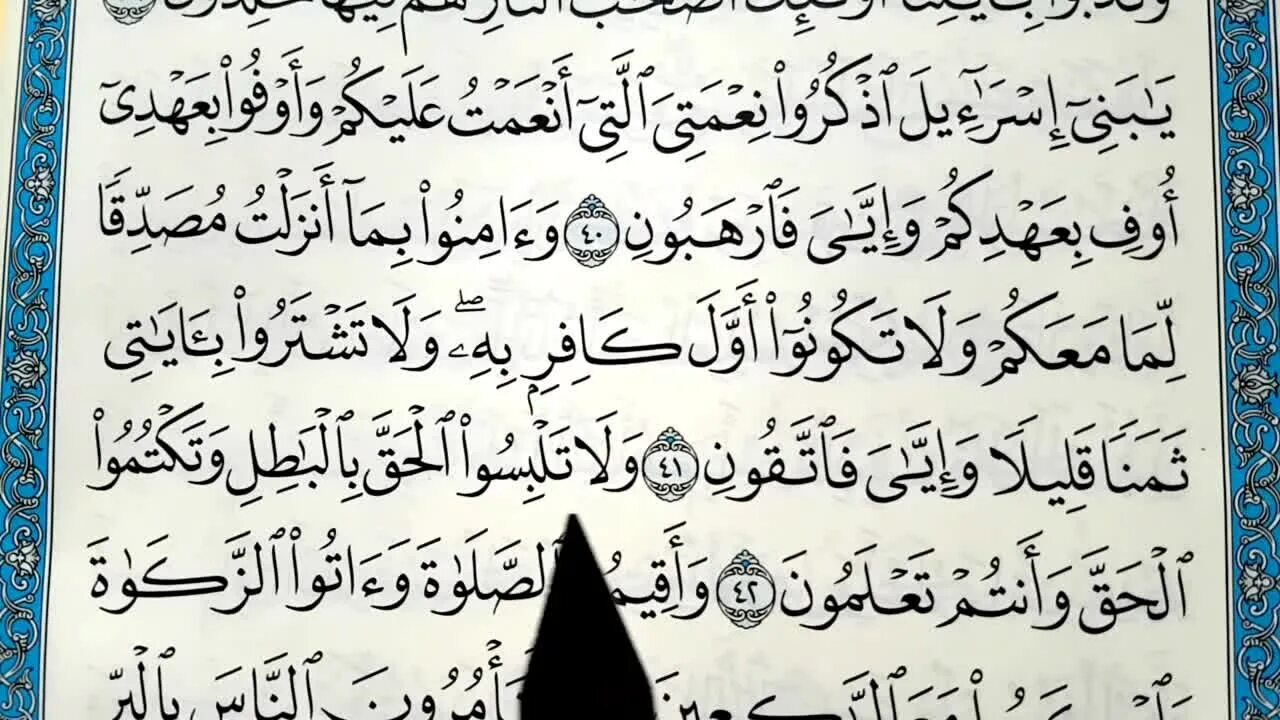 يَٰبَنِىٓ إِسْرَٰٓءِيلَ ٱذْكُرُوا۟ نِعْمَتِىَ ٱلَّتِىٓ أَنْعَمْتُ عَلَيْكُمْ وَأَوْفُوا۟ بِعَهْدِىٓ
أُوفِ بِعَهْدِكُمْ وَإِيَّٰىَ فَٱرْهَبُونِ ٤٠ وَءَامِنُوا۟ بِمَآ أَنزَلْتُ مُصَدِّقًا
لِّمَا مَعَكُمْ وَلَا تَكُونُوٓا۟ أَوَّلَ كَافِرٍۭ بِهِۦ ۖ وَلَا تَشْتَرُوا۟ بِـَٔايَٰتِى
ثَمَنًا قَلِيلًا وَإِيَّٰىَ فَٱتَّقُونِ ٤١ وَلَا تَلْبِسُوا۟ ٱلْحَقَّ بِٱلْبَٰطِلِ وَتَكْتُمُوا۟
ٱلْحَقَّ وَأَنتُمْ تَعْلَمُونَ ٤٢ وَأَقِيمُ ٱلصَّلَوٰةَ وَءَاتُوا۟ ٱلزَّكَوٰةَ
ٱلنَّاسَ بِٱلْبِرِّ